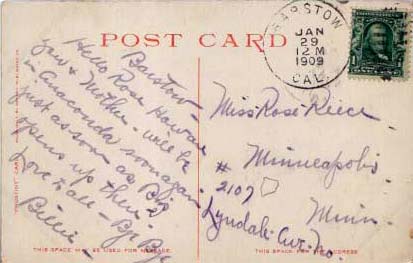 POST CARD
BARSTOW
JAN
29
12 M
1909
CAL.
Barstow -
Hello Rose How are
you & Mother - will be
in Anaconda soon again
just as soon as Biz
opens up there.
Love to all - By By
Billie -
Miss Rose Reice
Minneapolis
# 2107
Minn
Lyndale Ave. No.
THIS SPACE MAY BE USED FOR MESSAGE.
THIS SPACE FOR THE ADDRESS